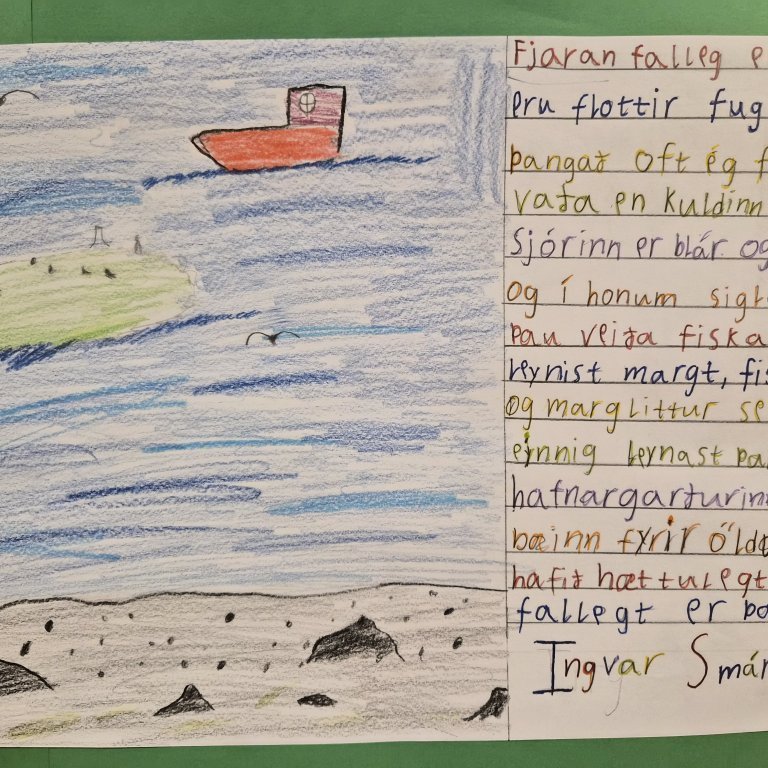 Fjaran falleg e
eru flottir fug
þangað oft ég f
vaða en kuldinn
Sjórinn er blár og
og í honum sigl
þau veiða fiska
leynist margt, fis
og marglittur se
einnig leynast þa
hafnargarðurinn
bæinn fyrir öld
hafið hættulegt
fallegt er þa
Ingvar Smár